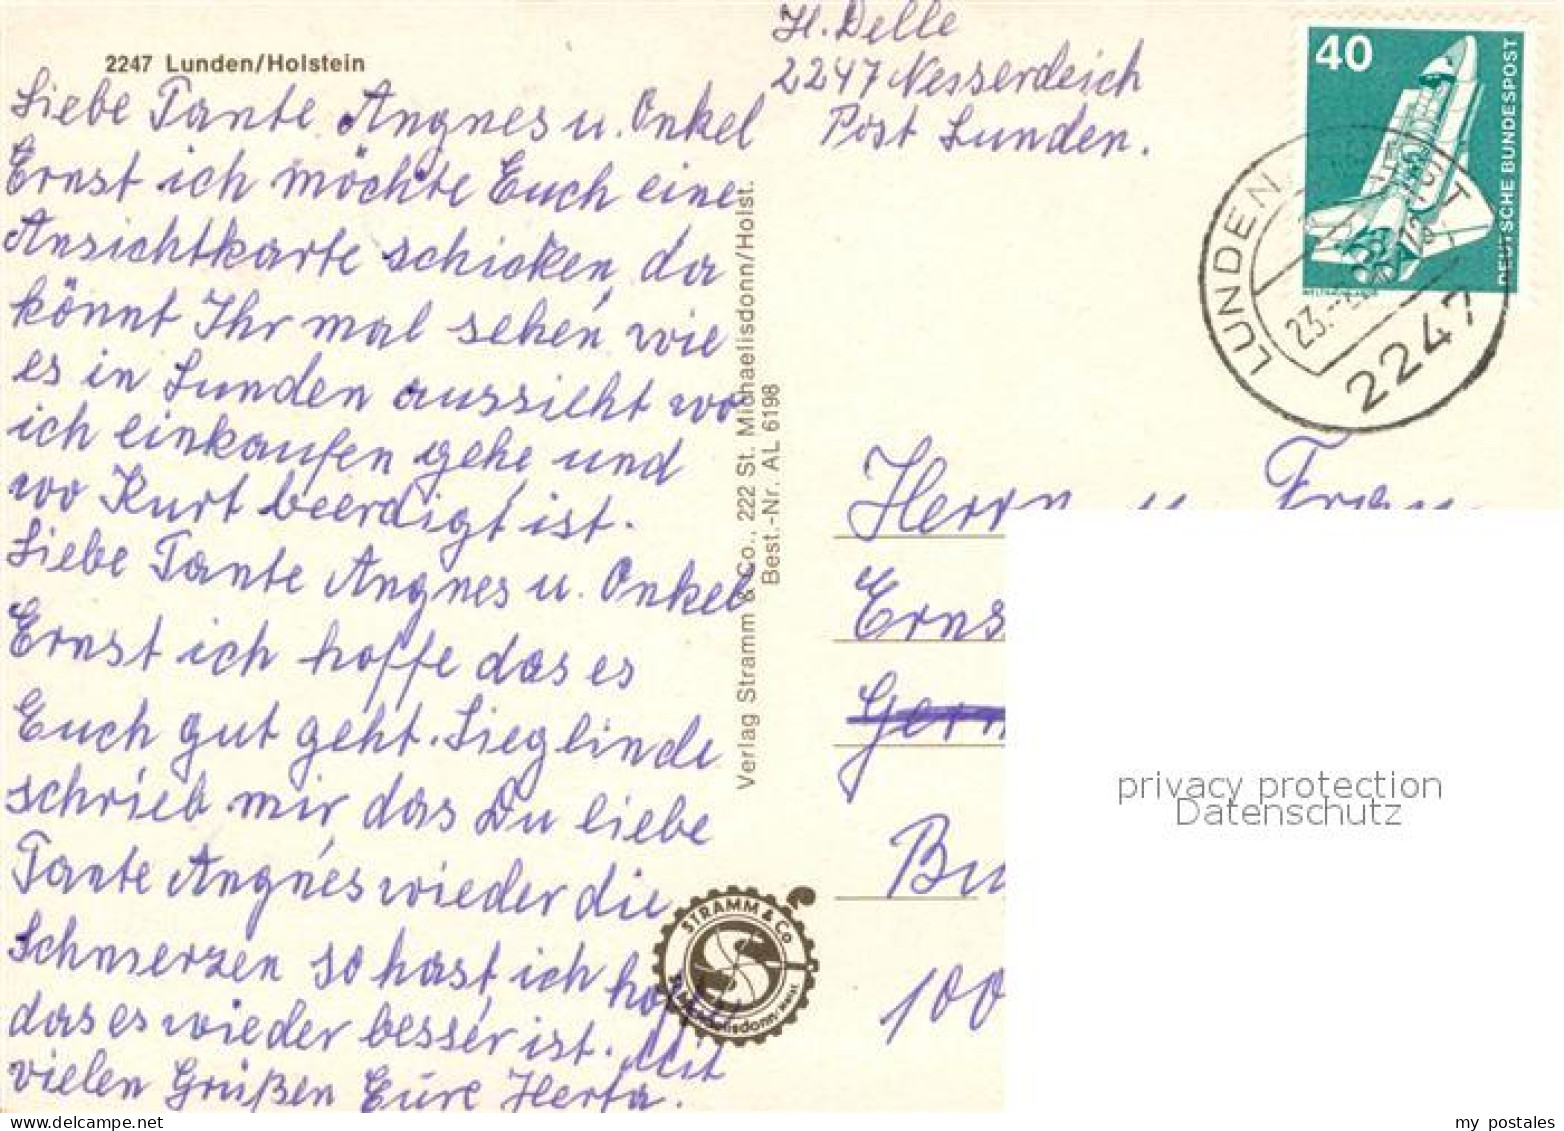 2247 Lunden/Holstein
Liebe Tante Angnes u. Onkel
Ernst ich möchte Euch eine
Ansichtkarte schicken, da
könnt Ihr mal sehen, wie
es in Lunden aussieht wo
ich einkaufen gehe und
wo Kurt beerdigt ist.
Liebe Tante Angnes u. Onkel
Ernst ich hoffe das es
Euch gut geht. Sieglinde
schrieb mir das Du liebe
Tante Angnes wieder die
Schmerzen so hast, ich hoffe
das es wieder besser ist. Mit
vielen Grüßen Eure Herta.
Verlag Stramm & Co., 222 St. Michaelisdonn/Holst.
Best.-Nr. AL 6198
STRAMM & Co
St. Michaelisdonn/Holst
H. Delle
2247 Nesserdeich
Post Lunden.
40
DEUTSCHE BUNDESPOST
LUNDEN
23.
2247
Herrn u. Frau
Erns
Gern
Bu
100
privacy protection
Datenschutz
my postales
www.delcampe.net